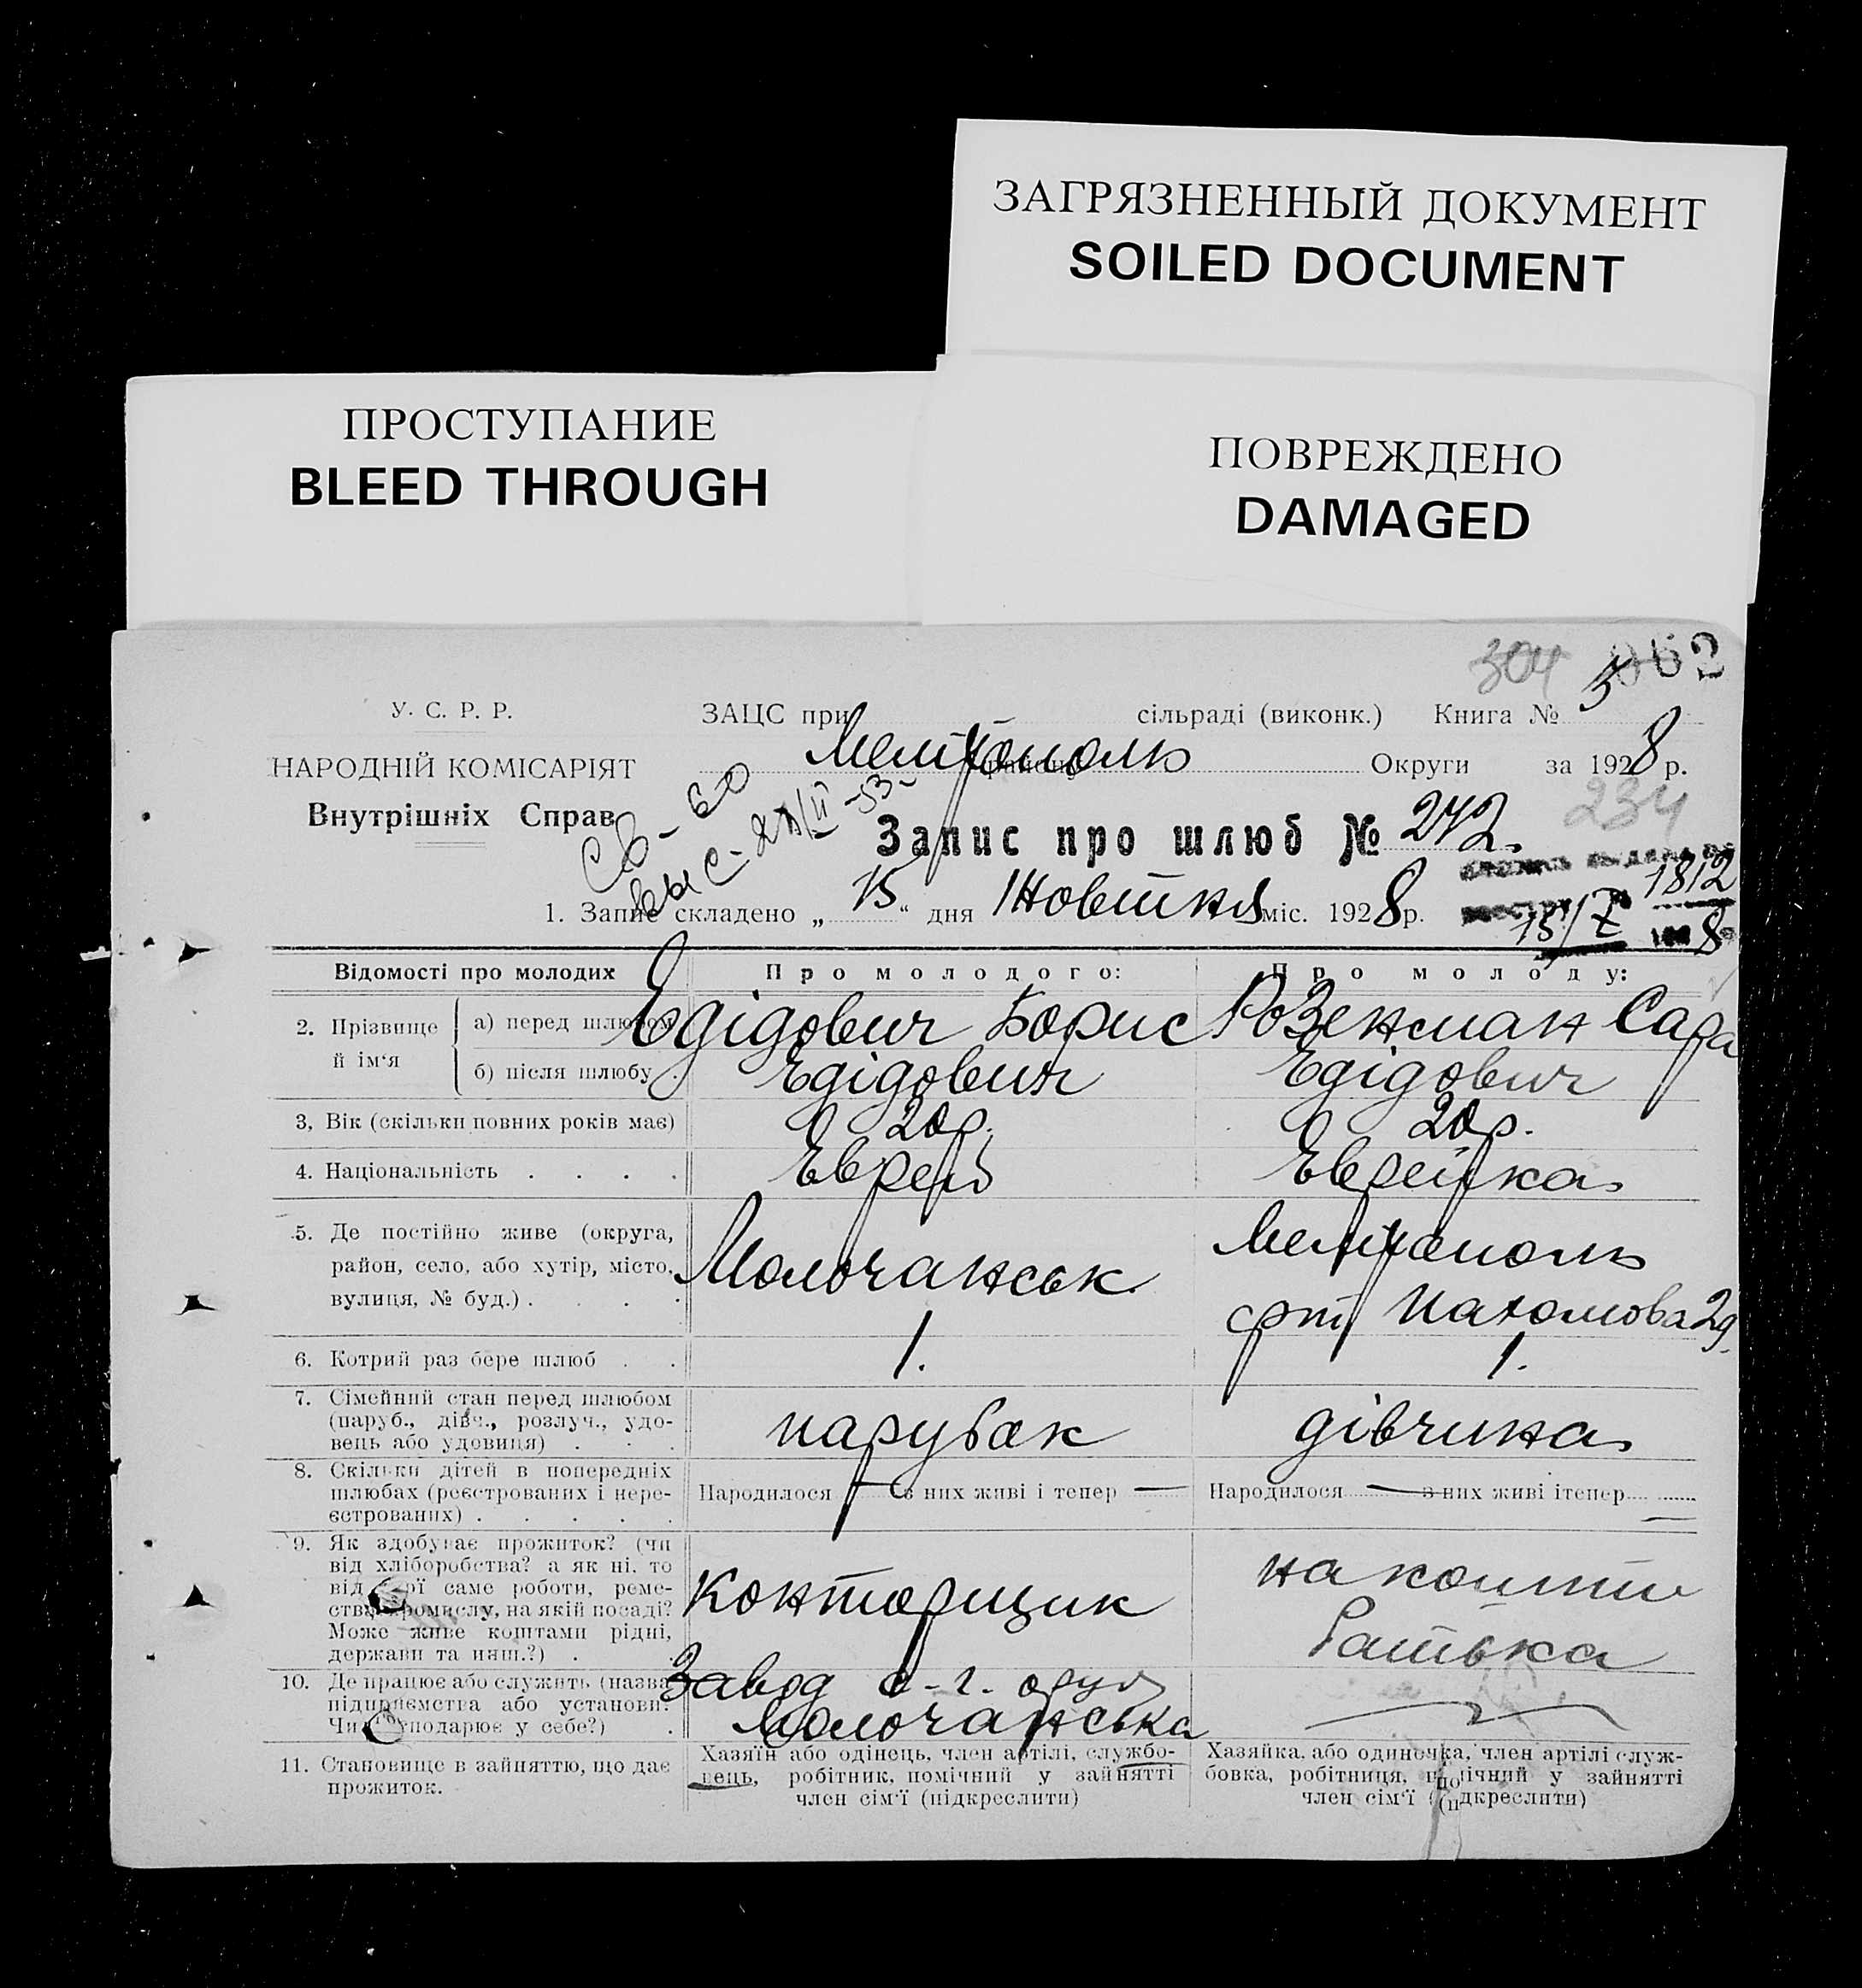 ЗАГРЯЗНЕННЫЙ ДОКУМЕНТ
SOILED DOCUMENT
ПРОСТУПАНИЕ
BLEED THROUGH
ПОВРЕЖДЕНО
DAMAGED
304 062
У. С. Р. Р.
ЗАЦС при сільраді (виконк.) Книга № 5
НАРОДНІЙ КОМІСАРІЯТ
Мелітополь району Округи за 1928 р.
Внутрішніх Справ
234
Запис про шлюб № 242.
1812
1. Запис складено „ 15 “ дня Жовтня міс. 1928 р.
Відомості про молодих
Про молодого:
Про молоду:
2. Прізвище й ім‘я
а) перед шлюбом Едідович Борис Розенман Сара
б) після шлюбу Едідович Едідович
3, Вік (скільки повних років має) 20 р. 20 р.
4. Національність . . . . Еврей Еврейка
5. Де постійно живе (округа,
район, село, або хутір, місто,
вулиця, № буд.) . . . .
Молочанськ
Мелітополь
Пахомова 29
6. Котрий раз бере шлюб . . 1. 1.
7. Сімейний стан перед шлюбом
(паруб., дівч., розлуч., удо-
вець або удовиця) . . .
парубок
дівчина
8. Скільки дітей в попередніх
шлюбах (реєстрованих і нере-
єстрованих) . . . . .
Народилося — з них живі і тепер —
Народилося — з них живі ітепер —
9. Як здобуває прожиток? (чи
від хліборобства? а як ні. то
від якої саме роботи, реме-
ства промислу, на якій посаді?
Може живе коштами рідні,
держави та инш.?) .
Конторщик
на кошти
батька
10. Де працює або служить (назва
підприємства або установи?
Чи господарює у себе?) .
Завод с-г. оруд
Молочанська
11. Становище в зайняттю, що дає
прожиток.
Хазяїн або одінець, член артілі, службо-
вець, робітник, помічний у зайнятті
член сім‘ї (підкреслити)
Хазяйка, або одиночка, член артілі служ-
бовка, робітниця, помічний у зайнятті
член сім‘ї (підкреслити)